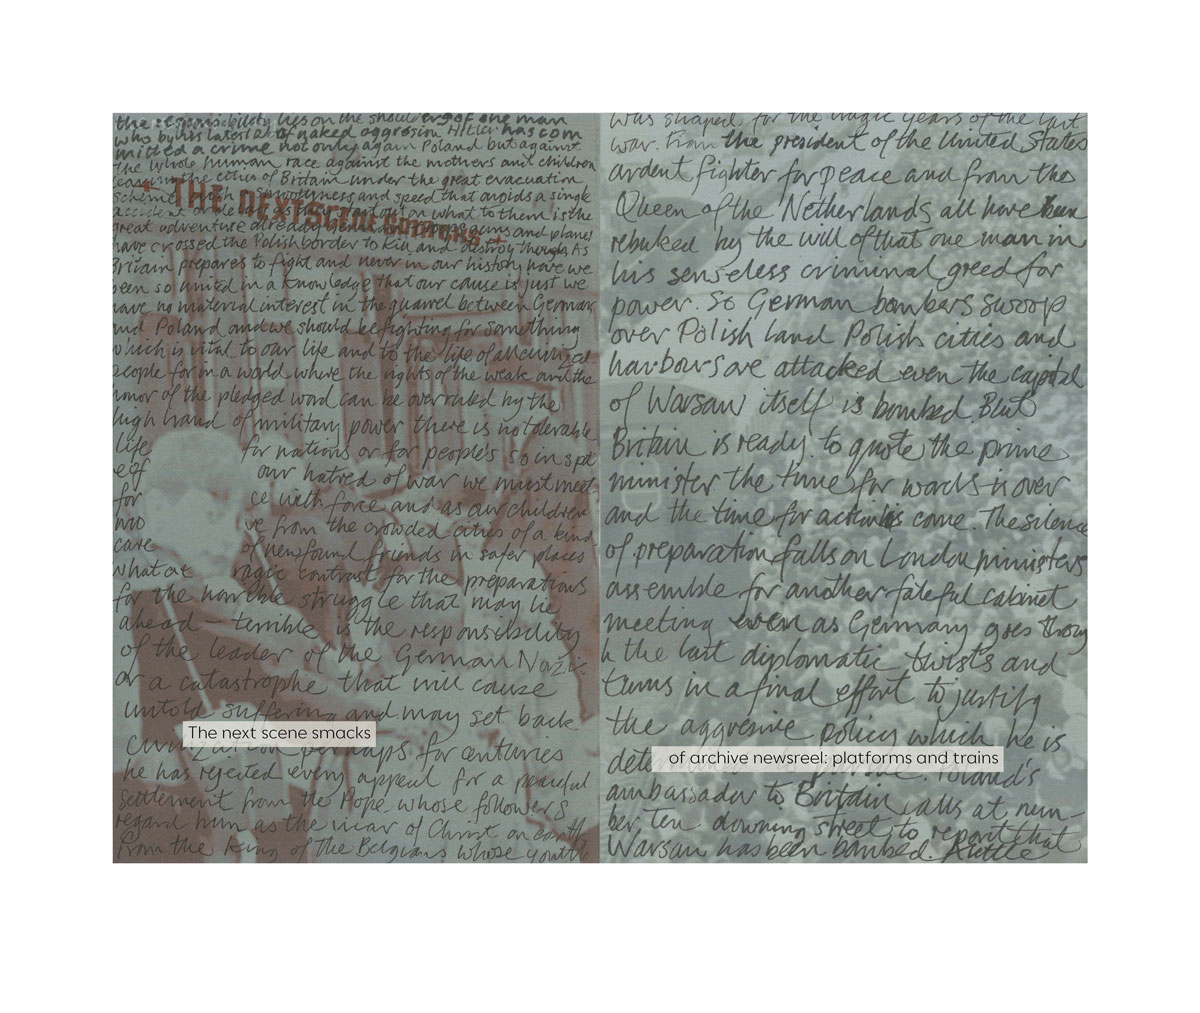 the responsibility lies on the shoulders of one man
who by his latest act of naked aggression Hitler has com
mitted a crime not only again Poland but against
the whole human race against the mothers and children
the cities of Britain under the great evacuation
scheme with smoothness and speed that avoids a single
THE NEXT SCENE SMACKS
accident on what to them is the
great adventure already guns and planes
have crossed the Polish border to kill and destroy though As
Britain prepares to fight and never in our history have we
been so united in a knowledge that our cause is just we
have no material interest in the quarrel between German
and Poland and we should be fighting for something
which is vital to our life and to the life of all civilized
people for in a world where the rights of the weak and the
honor of the pledged word can be overruled by the
high hand of military power there is no tolerable
life for nations or for peoples so in spit
e of our hatred of war we must meet
for ce with force and as our children
mo ve from the crowded cities of a kind
care of newfound friends in safer places
what a tragic contrast for the preparations
for the horrible struggle that may lie
ahead – terrible is the responsibility
of the leader of the German Nazis
or a catastrophe that will cause
untold suffering and may set back
The next scene smacks
perhaps for centuries
he has rejected every appeal for a peaceful
settlement from the Pope whose followers
regard him as the vicar of Christ on earth
from the King of the Belgians whose youth
was shaped for the tragic years of the last
war. From the president of the United States
ardent fighter for peace and from the
Queen of the Netherlands all have been
rebuked by the will of that one man in
his senseless criminal greed for
power. So German bombers swoop
over Polish land Polish cities and
harbours are attacked even the capital
of Warsaw itself is bombed. But
Britain is ready to quote the prime
minister the time for words is over
and the time for action is come. The silence
of preparation falls on London ministers
assemble for another fateful cabinet
meeting even as Germany goes throug
h the last diplomatic twists and
turns in a final effort to justify
the aggresive policy which he is
of archive newsreel: platforms and trains
determined to pursue. Poland's
ambassador to Britain calls at num-
ber Ten downing street to report that
Warsaw has been bombed.